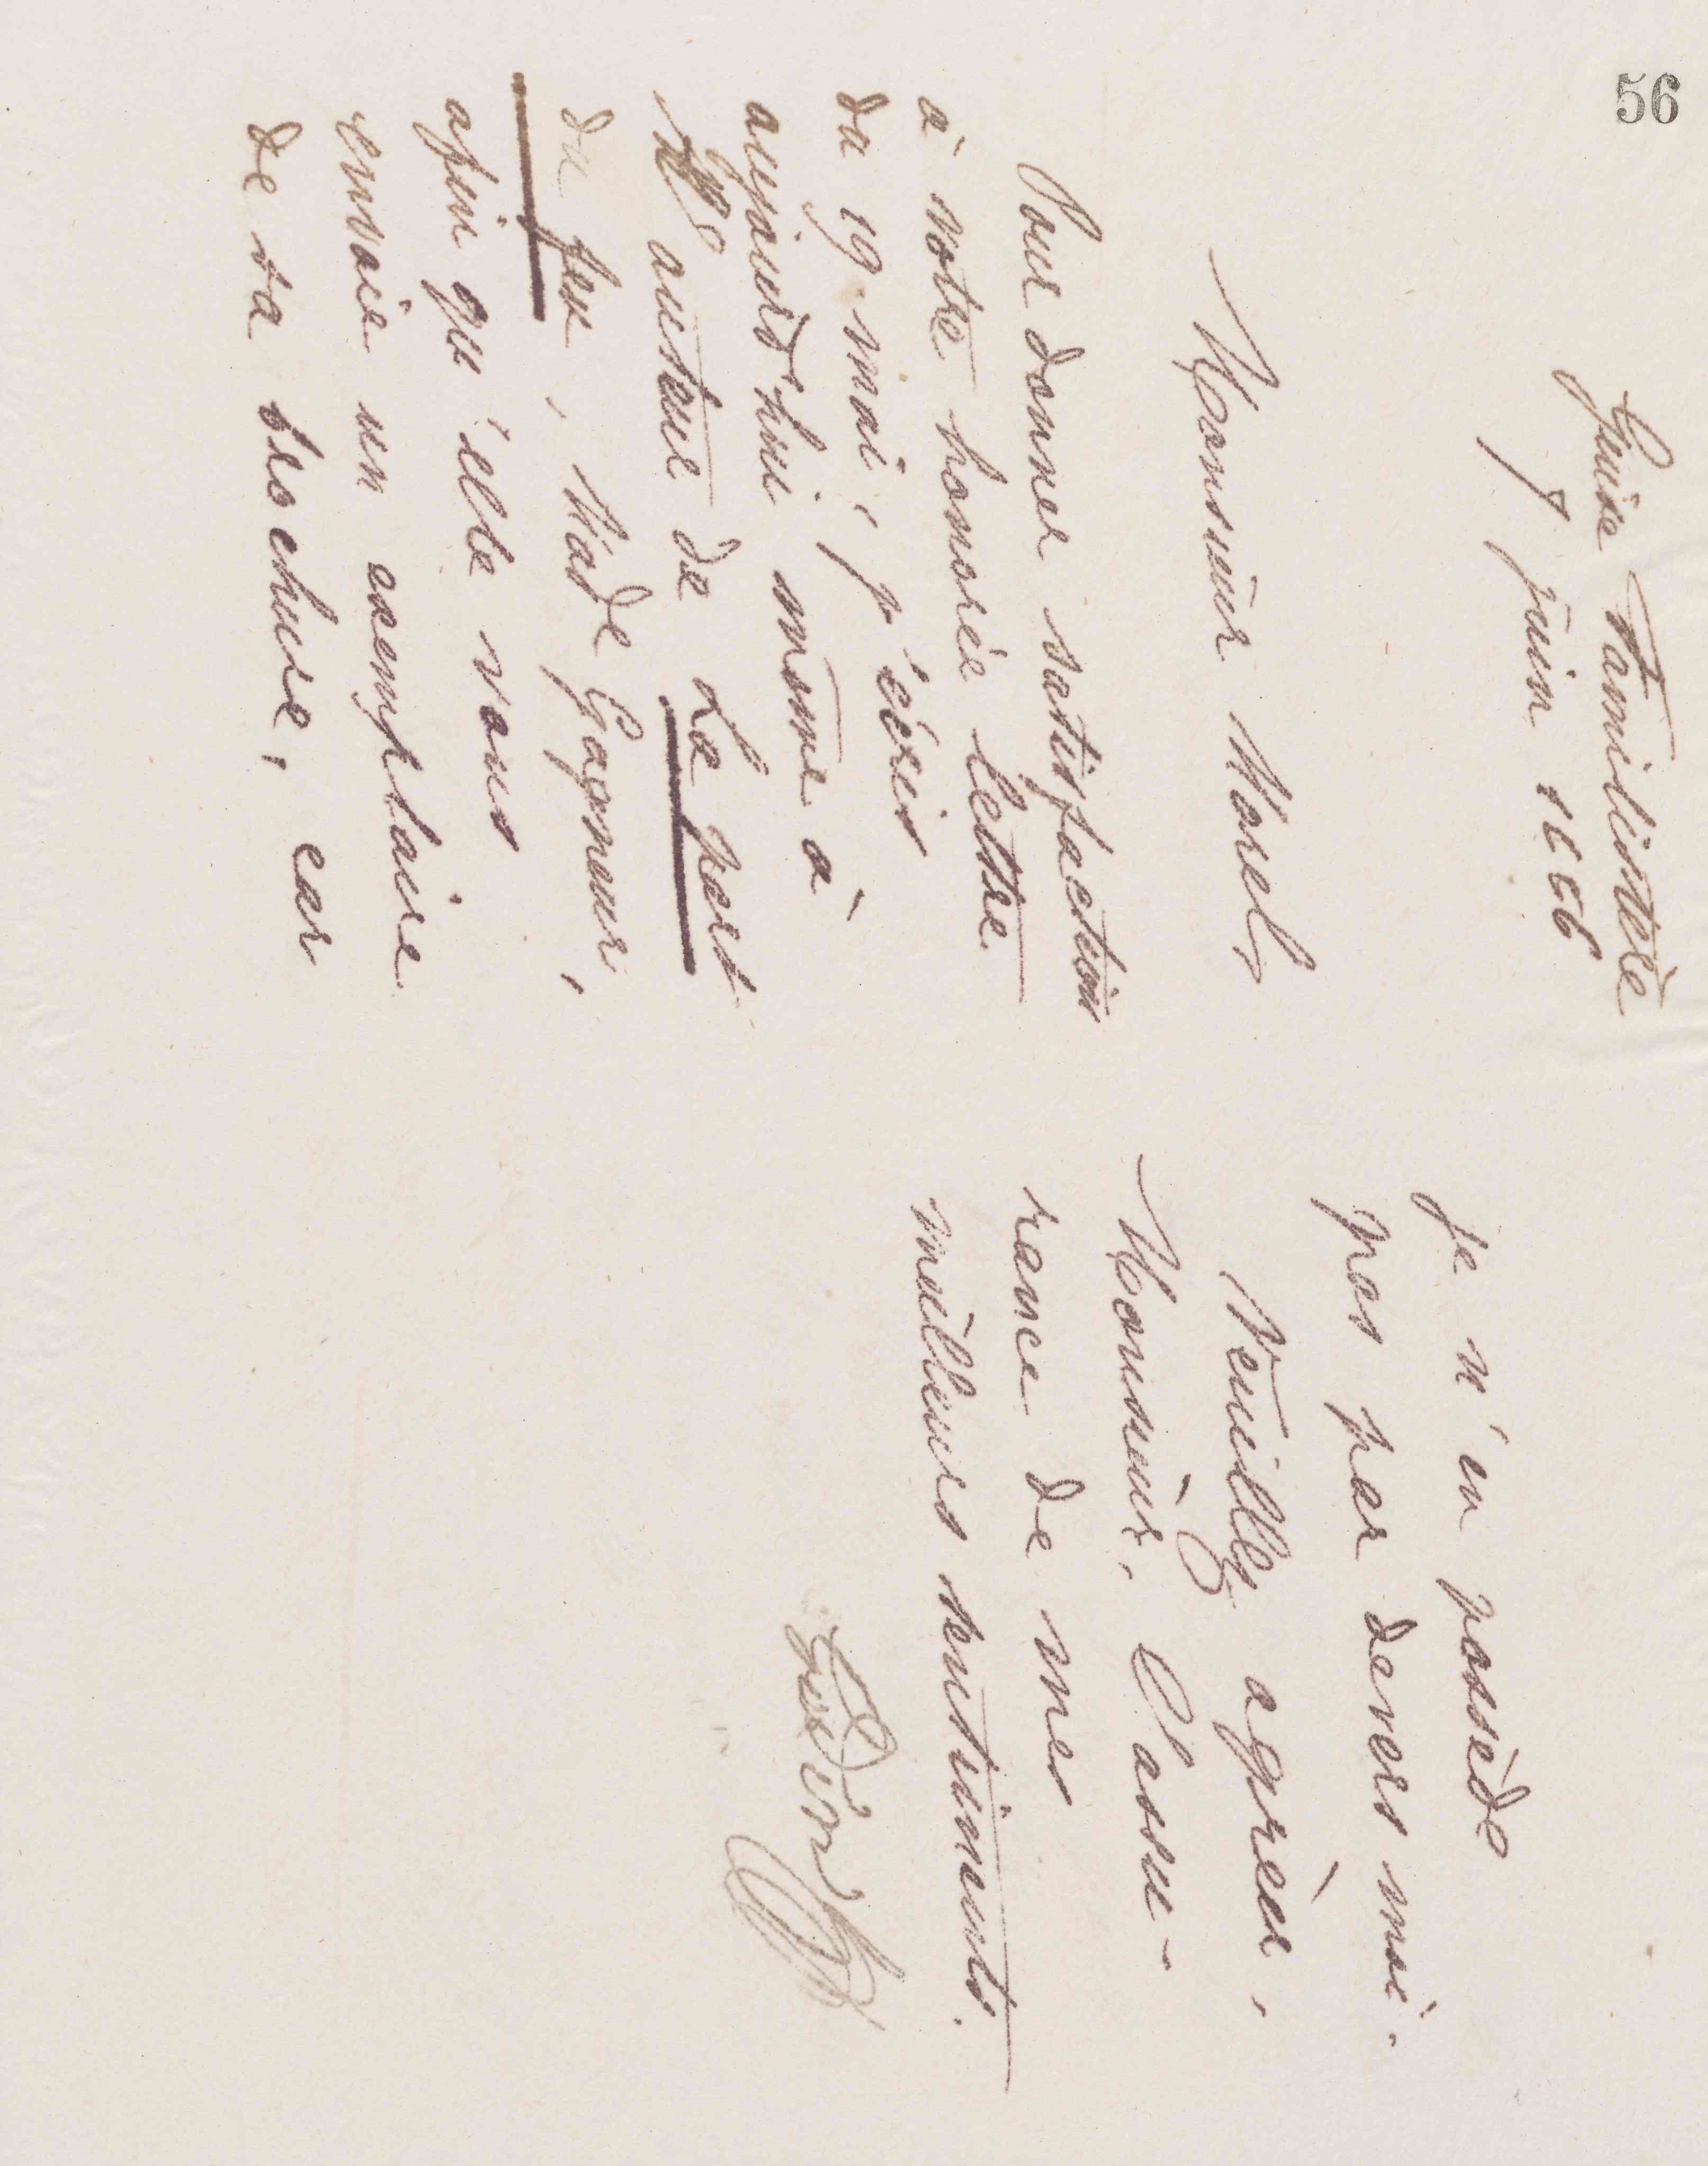 56
Guise Familistère
7 juin 1886
Monsieur Morel,
Pour donner satisfaction
à votre honorée lettre
du 19 mai, j'écris
aujourd'hui même à
auteur de La part
du feu, Made Gagneur,
afin qu'elle vous
envoie un exemplaire
de sa brochure, car
je n'en possède
pas par devers moi.
Veuillez agréer,
Monsieur, l'assu-
rance de mes
meilleurs sentiments.
Godin